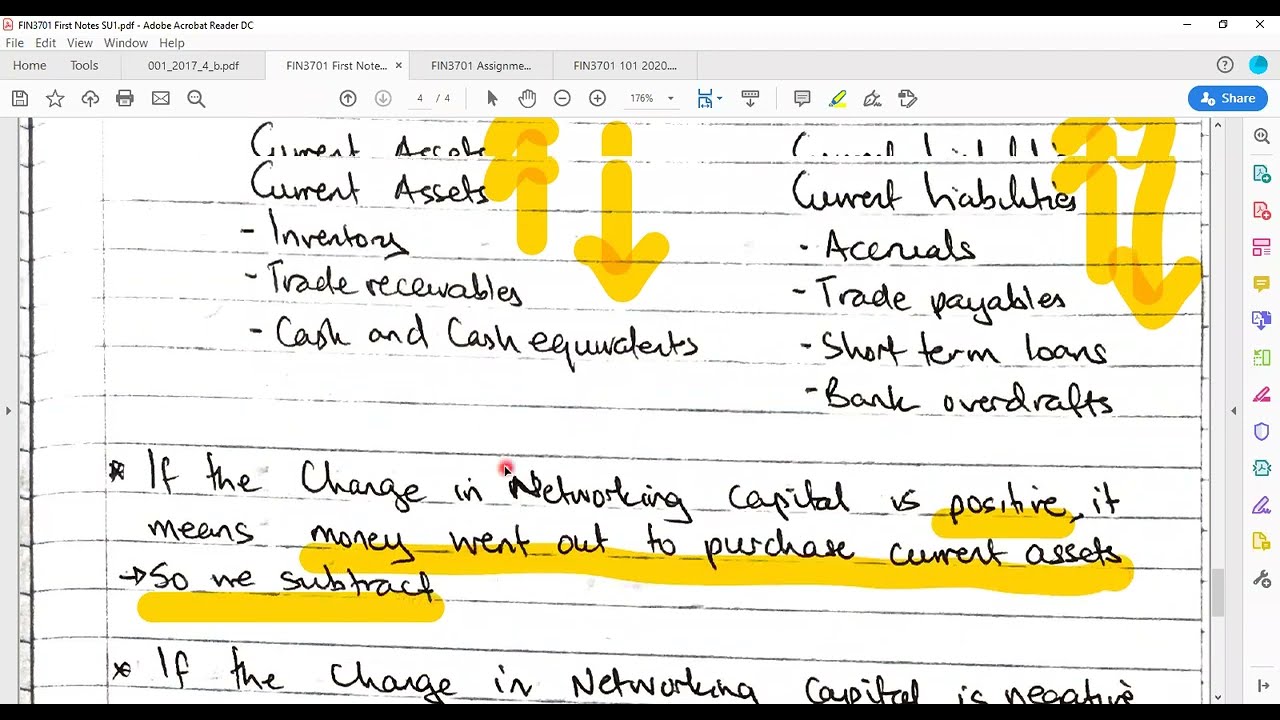 FIN3701 First Notes SU1.pdf - Adobe Acrobat Reader DC
File Edit View Window Help
Home Tools 001_2017_4_b.pdf FIN3701 First Note... × FIN3701 Assignme... FIN3701 101 2020....
4 / 4 176% Share
Current Assets Current liabilities
- Inventory - Accruals
- Trade receivables - Trade payables
- Cash and Cash equivalents - Short term loans
- Bank overdrafts
* If the Change in Networking capital is positive, it
means money went out to purchase current assets
→ So we subtract
* If the Change in Networking Capital is negative